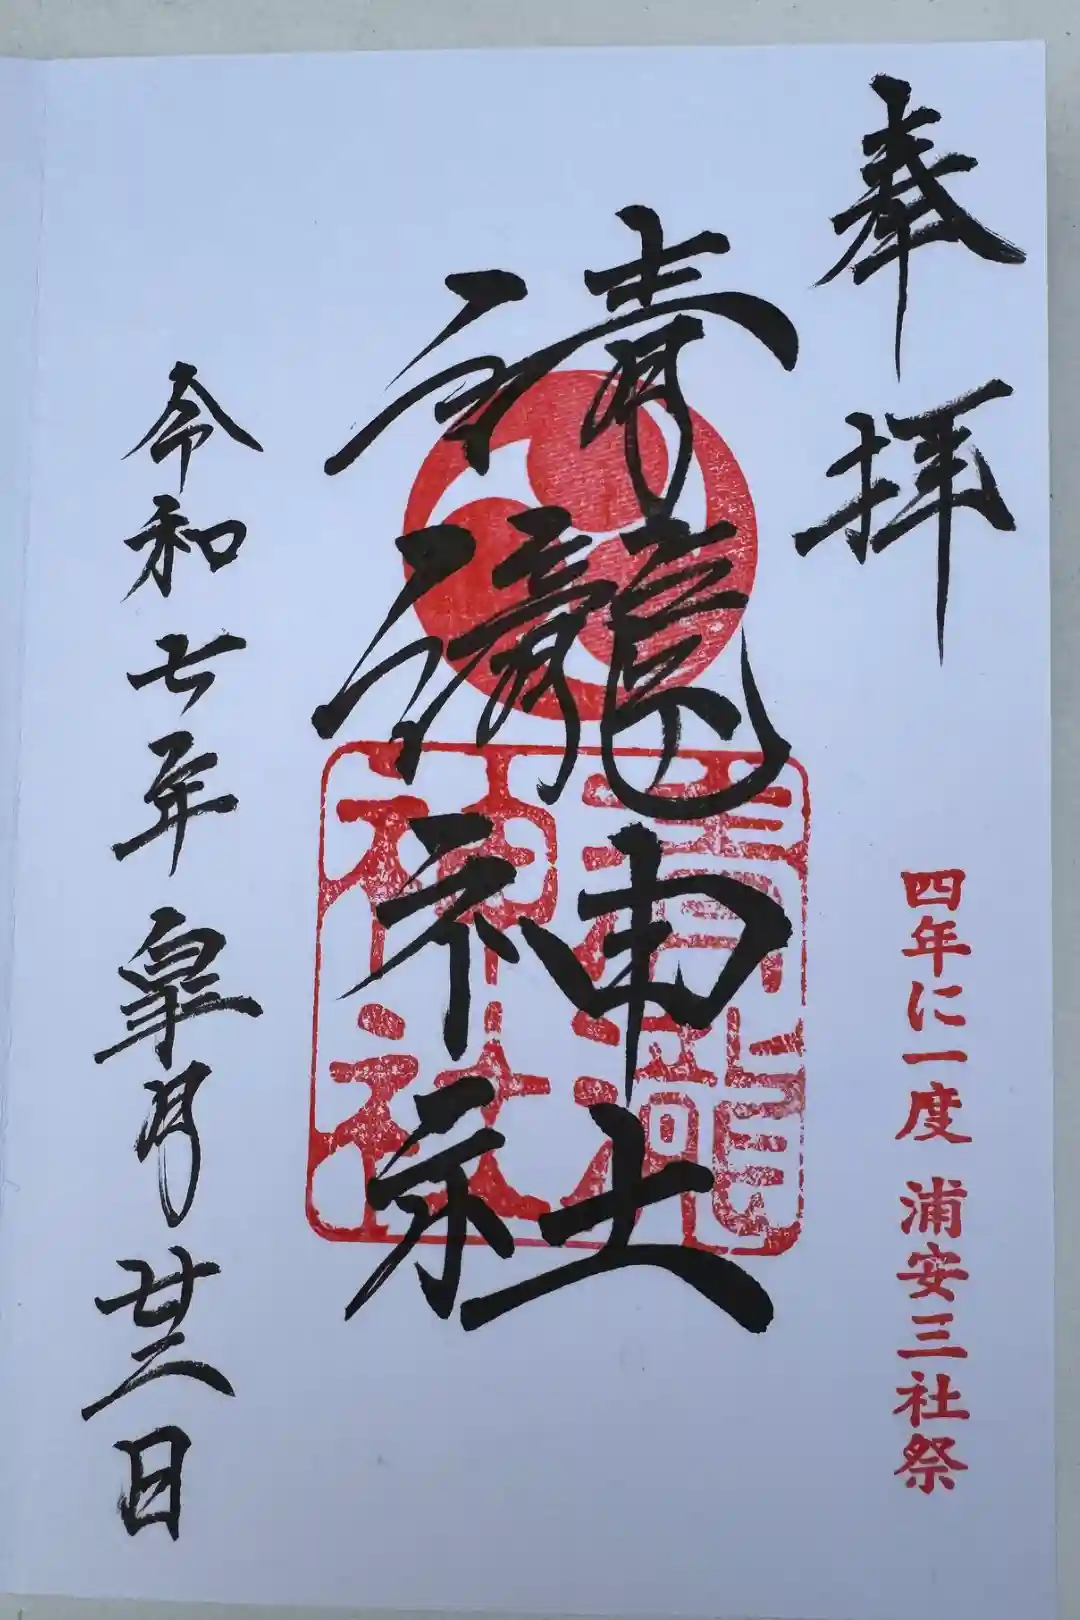 奉拝
四年に一度 浦安三社祭
清瀧神社
清瀧神社
令和七年皐月廿二日